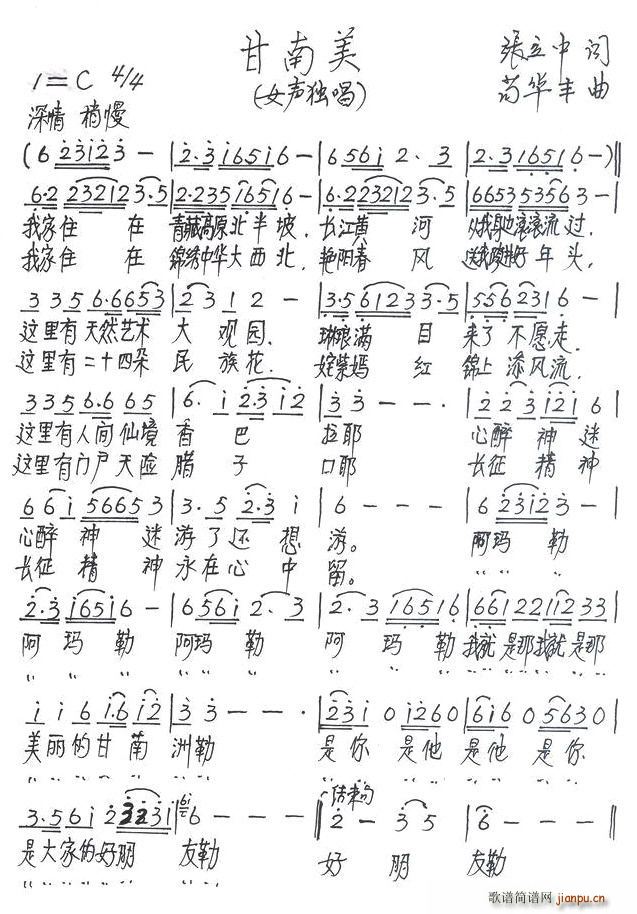 甘南美
(女声独唱)
張立中 词
苟华丰 曲
1=C 4/4
深情 稍慢
(6 23123 — | 2·3 16516 — | 6 561 2· 3 | 2·3 1651 6 —)‖
6·2 232123·5 | 2·235 16516 — | 6·2 22321 23·5 | 6653 53563 — |
我家住 在 青藏高原北半坡, 长江黄 河 滚滚流过,
我家住 在 锦绣中华大西北, 艳阳春 风 年头,
3 35 6·6653 | 2 3 1 2 — | 3·5 6123 3·5 | 556 231 6 — |
这里有天然艺术 大 观园, 琳琅满 目 来了 不愿走,
这里有二十四朵 民 族花, 姹紫嫣 红 锦上 添风流,
3335 6·6 65 | 6· 1 2·3 12 | 3 3 — — | 2 23 121 6 |
这里有人间仙境 香 巴 拉耶 心醉 神 迷
这里有门户天险 腊 子 口耶 长征 精 神
6 61 56653 | 3· 5 2·3 1 | 6 — — — | 6 23123 — |
心醉 神 迷 游了还 想 游。 阿玛 勒
长征 精 神 永在心 中 留。 〃 〃 〃
2·3 16516 — | 6 561 2· 3 | 2· 3 1651 6 | 661 22 112 33 |
阿 玛 勒 阿玛 勒 阿 玛 勒 我就是那我就是那
〃 〃 〃 〃 〃 〃 〃 〃 〃 〃 〃 〃
1 1 6 1·6 12 | 3 3 — — | 231 0 1260 | 616 0 5630 |
美丽的甘 南 洲勒 是你 是他 是他 是你
〃 〃 〃 〃 〃 〃 〃 〃 〃 〃 〃
结束句
3·561 232231 | 6 — — — ‖ 2 — 3 5 | 6 — — — ‖
是大家的好朋 友勒 好 朋 友勒
歌谱简谱网
jianpu.cn